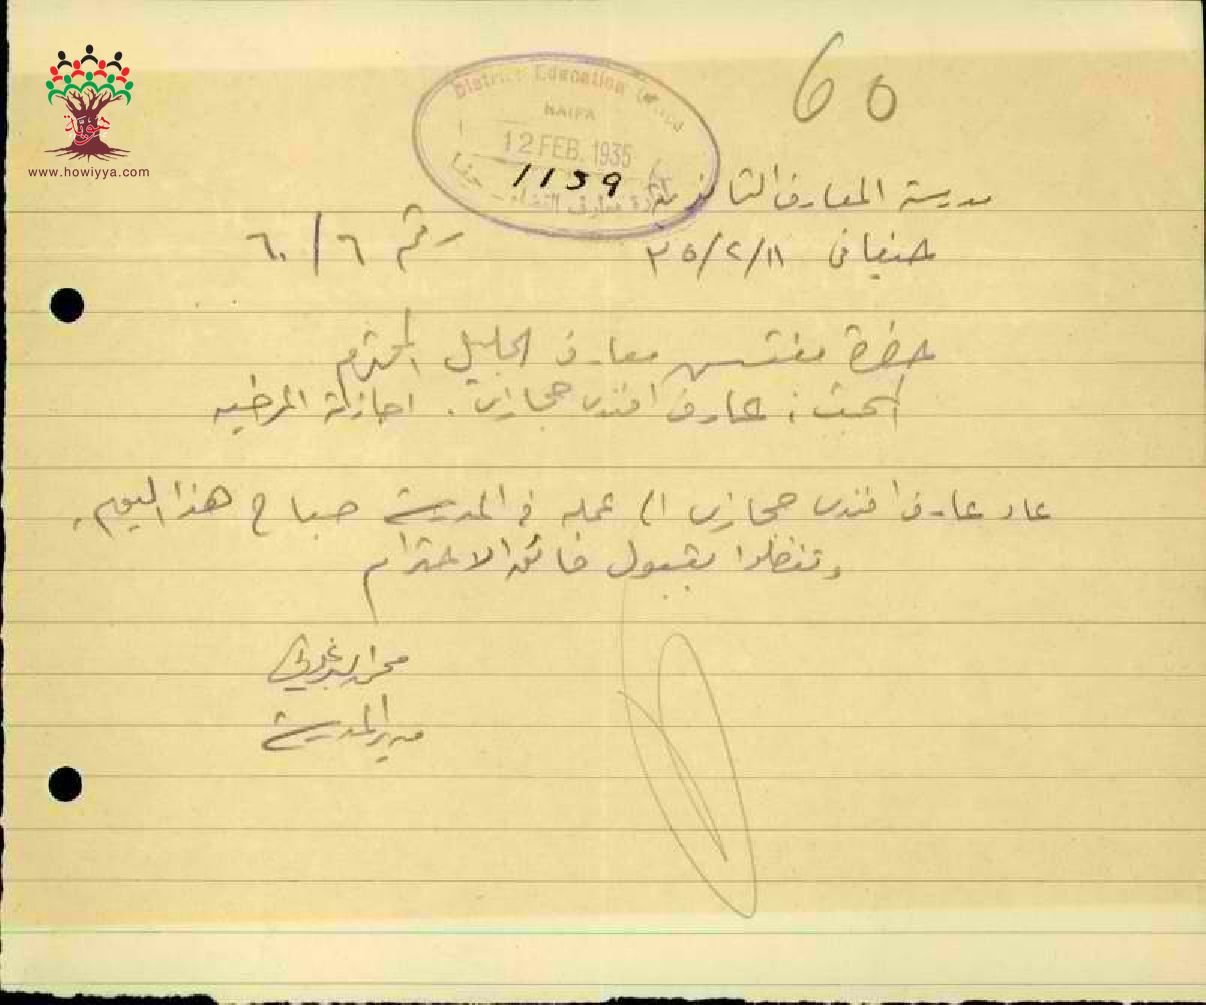 60
District Education Office
HAIFA
12 FEB. 1935
1139
هوية
www.howiyya.com
مدرسة المعارف الثانوية
في ٣٥/٢/١١
رقم ٦٠/٦
حضرة مفتش معارف الجليل المحترم
البحث : عارف افندي حجازي . اجازته المرضيه
عاد عارف افندي حجازي الى عمله في المدرسة صباح هذا اليوم .
وتفضلوا بقبول فائق الاحترام
مدير المدرسة